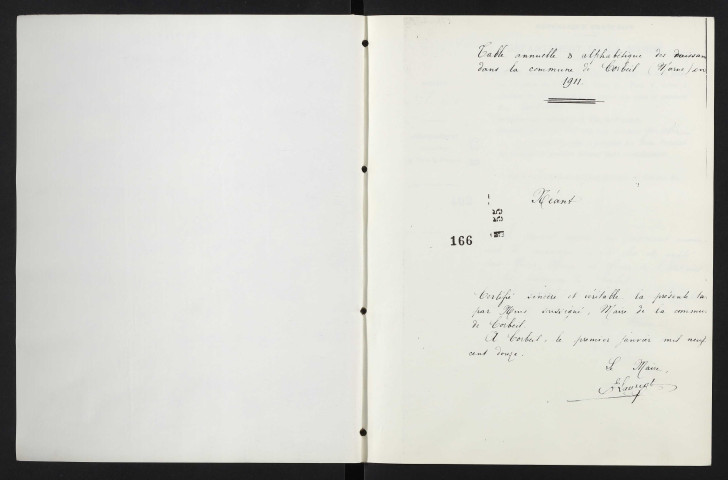 Table annuelle & alphabétique des naissan
dans la commune de Corbeil (Marne) en
1911.
Néant
166
Certifié sincère et véritable la présente ta
par Nous soussigné, Maire de la commune
de Corbeil
A Corbeil, le premier janvier mil neuf
cent douze.
Le Maire,